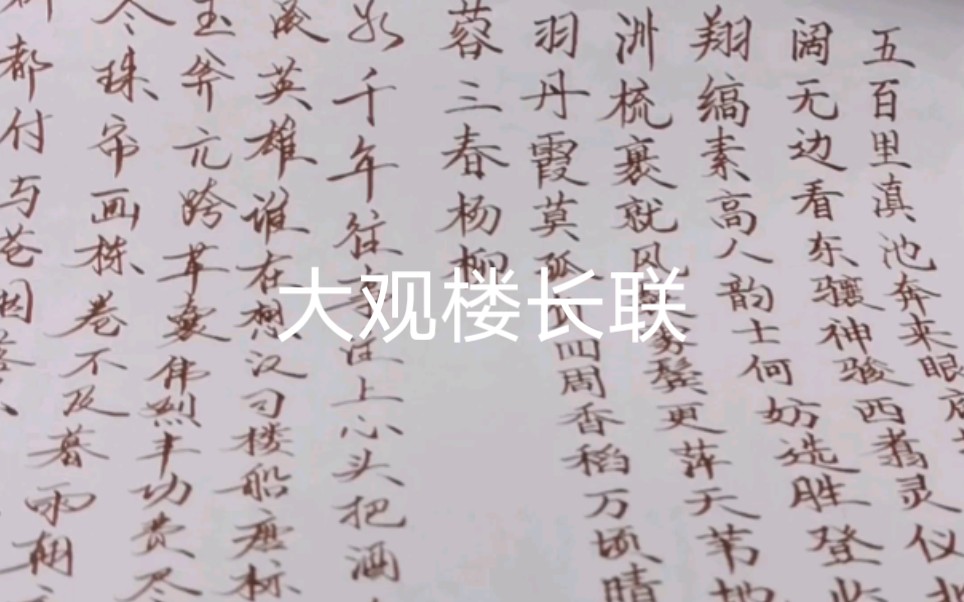 五百里滇池奔来眼底
阔无边看东骧神骏西翥灵仪北
翔缟素高人韵士何妨选胜登临
洲梳裹就风雾鬓更萍天苇地
羽丹霞莫孤四周香稻万顷晴
蓉三春杨柳
数千年往事注上心头把酒
滚英雄谁在想汉习楼船唐标
玉斧元跨革囊伟烈丰功费尽
珠帘画栋卷不及暮雨朝
都付与苍烟落
大观楼长联